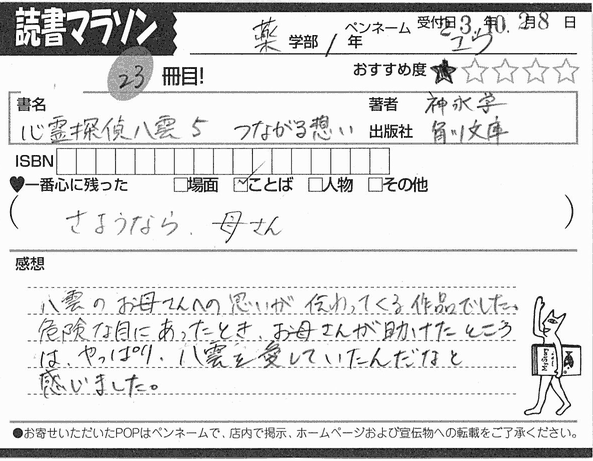 読書マラソン
薬 学部 / 年 ペンネーム ユウ 受付日 23.年10.月28 日
23 冊目! おすすめ度 ★☆☆☆☆
書名 著者 神永学
心霊探偵八雲 5 つながる想い 出版社 角川文庫
ISBN
♥一番心に残った □場面 ☑ことば □人物 □その他
( さようなら、母さん )
感想
八雲のお母さんへの思いが伝わってくる作品でした。
危険な目にあったとき、お母さんが助けたところ
は、やっぱり、八雲を愛していたんだなと
感じました。
●お寄せいただいたPOPはペンネームで、店内で掲示、ホームページおよび宣伝物への転載をご了承ください。